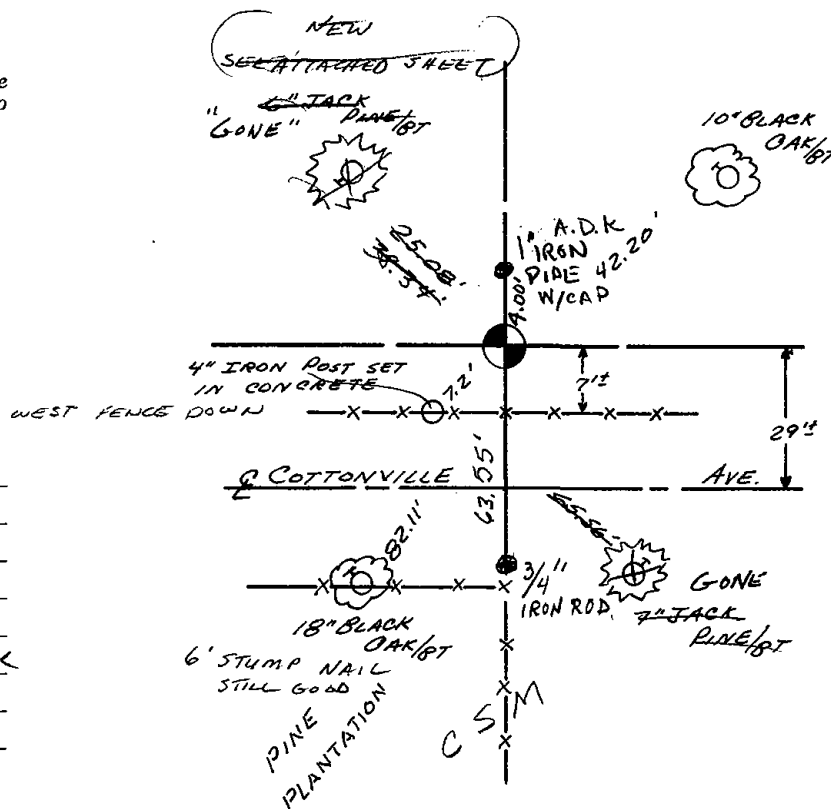 NEW
SEE ATTACHED SHEET
6" JACK
PINE/BT
"GONE"
10" BLACK
OAK/BT
25.08'
38.34'
A.D.K
1" IRON
PIPE
W/CAP
42.20'
4.00'
4" IRON POST SET
IN CONCRETE
7.2'
7'±
WEST FENCE DOWN
29'±
63.55'
℄ COTTONVILLE AVE.
82.11'
3/4"
IRON ROD
GONE
7" JACK
PINE/BT
18" BLACK
OAK/BT
6' STUMP NAIL
STILL GOOD
PINE
PLANTATION
C S M